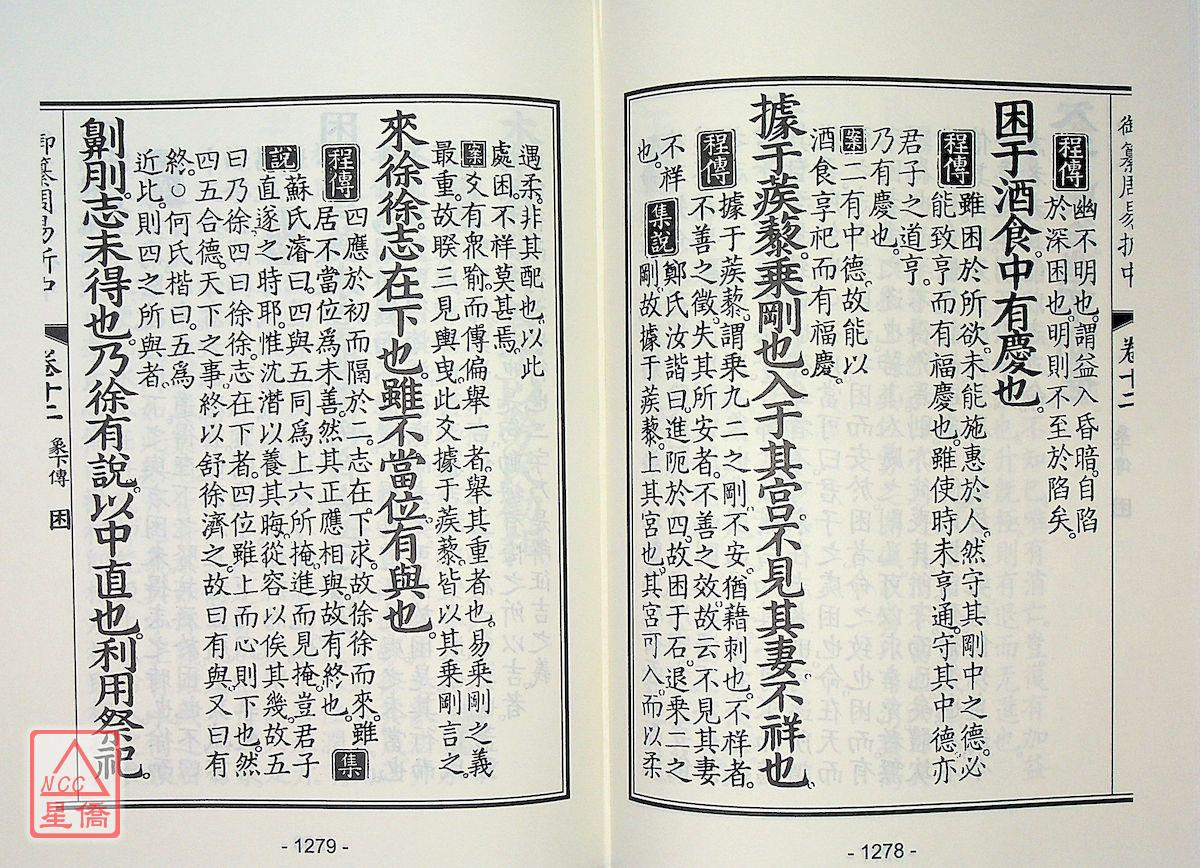 御纂周易折中
卷十二
程傳
幽不明也。謂益入昏暗。自陷
於深困也。明則不至於陷矣。
困于酒食。中有慶也。
程傳
雖困於所欲。未能施惠於人。然守其剛中之德。必
能致亨而有福慶也。雖使時未亨通。守其中德。亦
君子之道亨。
乃有慶也。
案二有中德。故能以
酒食享祀而有福慶。
據于蒺藜。乘剛也。入于其宮。不見其妻。不祥也。
程傳
據于蒺藜。謂乘九二之剛。不安。猶藉刺也。不祥者。
不善之徵。失其所安者。不善之效。故云不見其妻
不祥
也。
集說
鄭氏汝諧曰。進阨於四。故困于石。退乘二之
剛。故據于蒺藜。上其宮也。其宮可入。而以柔
- 1278 -
遇柔。非其配也。以此
處困。不祥莫甚焉。
案爻有眾喻。而傳偏舉一者。舉其重者也。易乘剛之義
最重。故睽三見輿曳。此爻據于蒺藜。皆以其乘剛言之。
來徐徐。志在下也。雖不當位。有與也。
程傳
四應於初而隔於二。志在下求。故徐徐而來。雖
居不當位為未善。然其正應相與。故有終也。
集
說
蘇氏濬曰。四與五同為上六所掩。進而見掩。豈君子
直遂之時耶。惟沈潛以養其晦。從容以俟其幾。故五
曰乃徐。四曰徐徐。志在下者。四位雖上而心則下也。然
四五合德。天下之事。終以舒徐濟之。故曰有與。又曰有
終。○何氏楷曰。五為
近比。則四之所與者。
劓刖。志未得也。乃徐有說。以中直也。利用祭祀。
御纂周易折中
卷十二
象下傳
困
- 1279 -
NCC
星僑